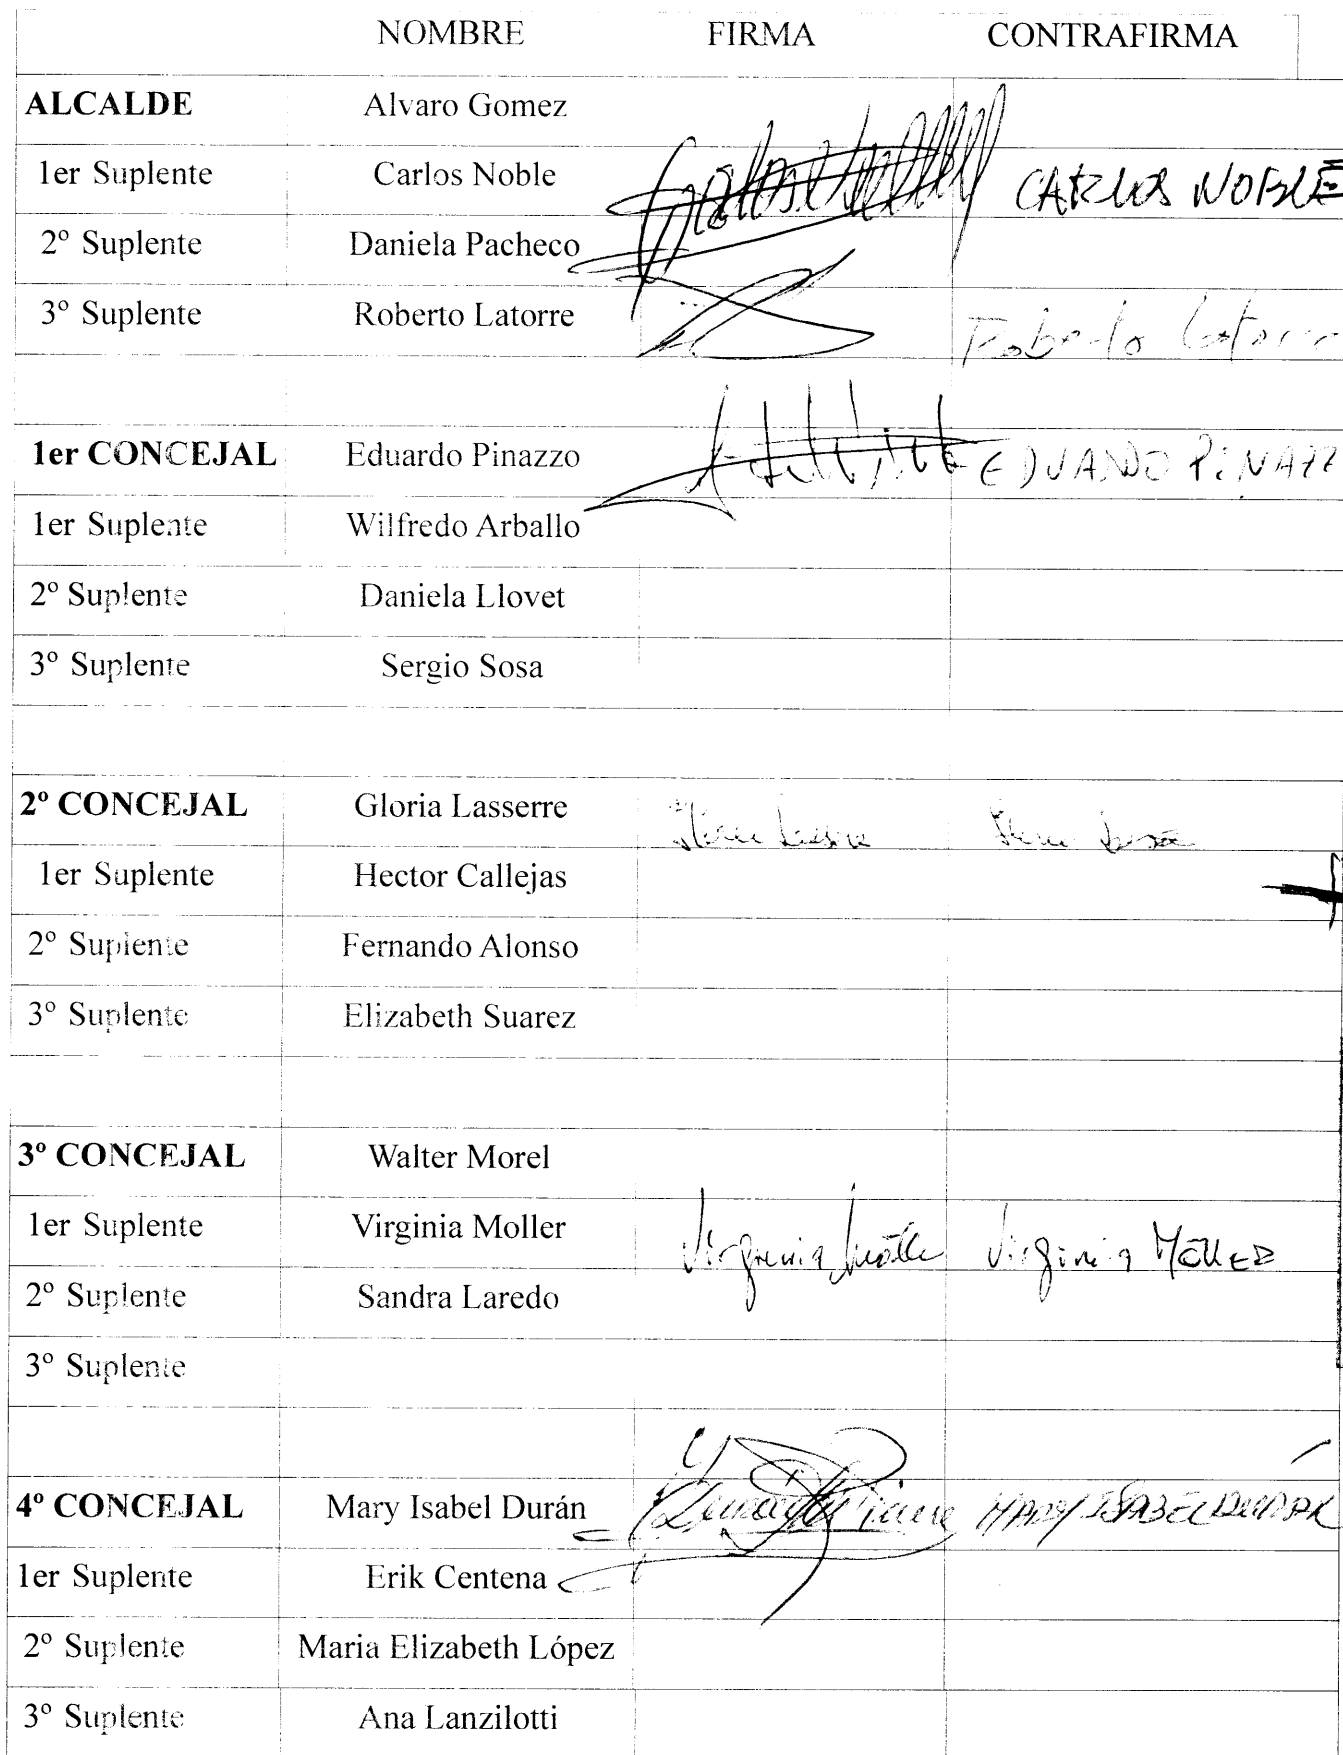 NOMBRE FIRMA CONTRAFIRMA
ALCALDE Alvaro Gomez
1er Suplente Carlos Noble CARLOS NOBLE
2º Suplente Daniela Pacheco
3º Suplente Roberto Latorre Roberto Latorre
1er CONCEJAL Eduardo Pinazzo EDUARDO PiNAZZ
1er Suplente Wilfredo Arballo
2º Suplente Daniela Llovet
3º Suplente Sergio Sosa
2º CONCEJAL Gloria Lasserre
1er Suplente Hector Callejas
2º Suplente Fernando Alonso
3º Suplente Elizabeth Suarez
3º CONCEJAL Walter Morel
1er Suplente Virginia Moller Virginia Möller Virginia MöllER
2º Suplente Sandra Laredo
3º Suplente
4º CONCEJAL Mary Isabel Durán MARY ISABEL DURÁN
1er Suplente Erik Centena
2º Suplente Maria Elizabeth López
3º Suplente Ana Lanzilotti